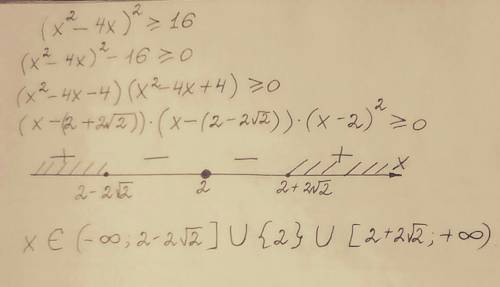 (x² - 4x)² ≥ 16
(x² - 4x)² - 16 ≥ 0
(x² - 4x - 4) (x² - 4x + 4) ≥ 0
(x - (2 + 2√2)) · (x - (2 - 2√2)) · (x - 2)² ≥ 0
+ — — + x
2 - 2√2 2 2 + 2√2
x ∈ (-∞; 2 - 2√2] ∪ {2} ∪ [2 + 2√2; +∞)